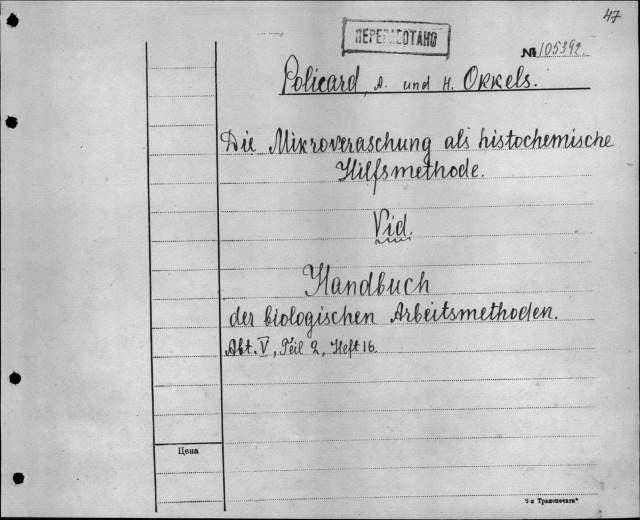 47
ПЕРЕРАБОТАНО
№ 105392.
Policard, A. und H. Okkels.
Die Mikroveraschung als histochemische
Hilfsmethode.
Vid.
Handbuch
der biologischen Arbeitsmethoden.
Abt. V, Teil 2, Heft 16.
Цена
"Транспечати"